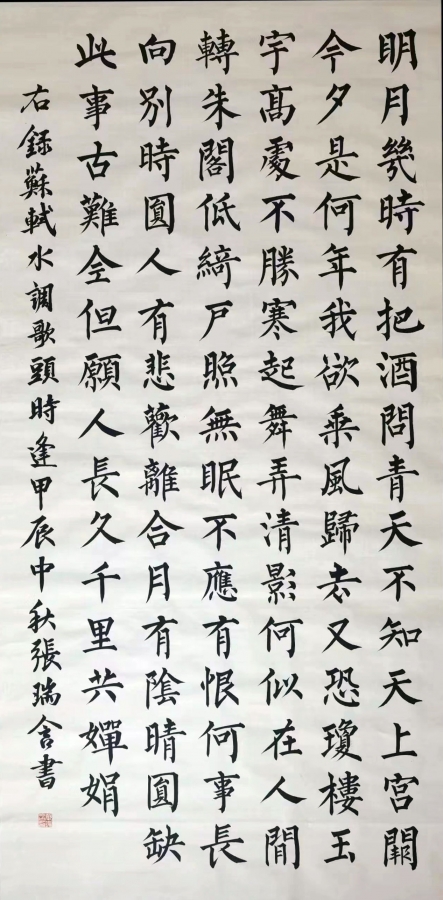 明月幾時有把酒問青天不知天上宮闕
今夕是何年我欲乘風歸去又恐瓊樓玉
宇髙處不勝寒起舞弄清影何似在人間
轉朱閣低綺戶照無眠不應有恨何事長
向別時圓人有悲歡離合月有陰晴圓缺
此事古難全但願人長久千里共嬋娟
右錄蘇軾水調歌頭時逢甲辰中秋張瑞含書